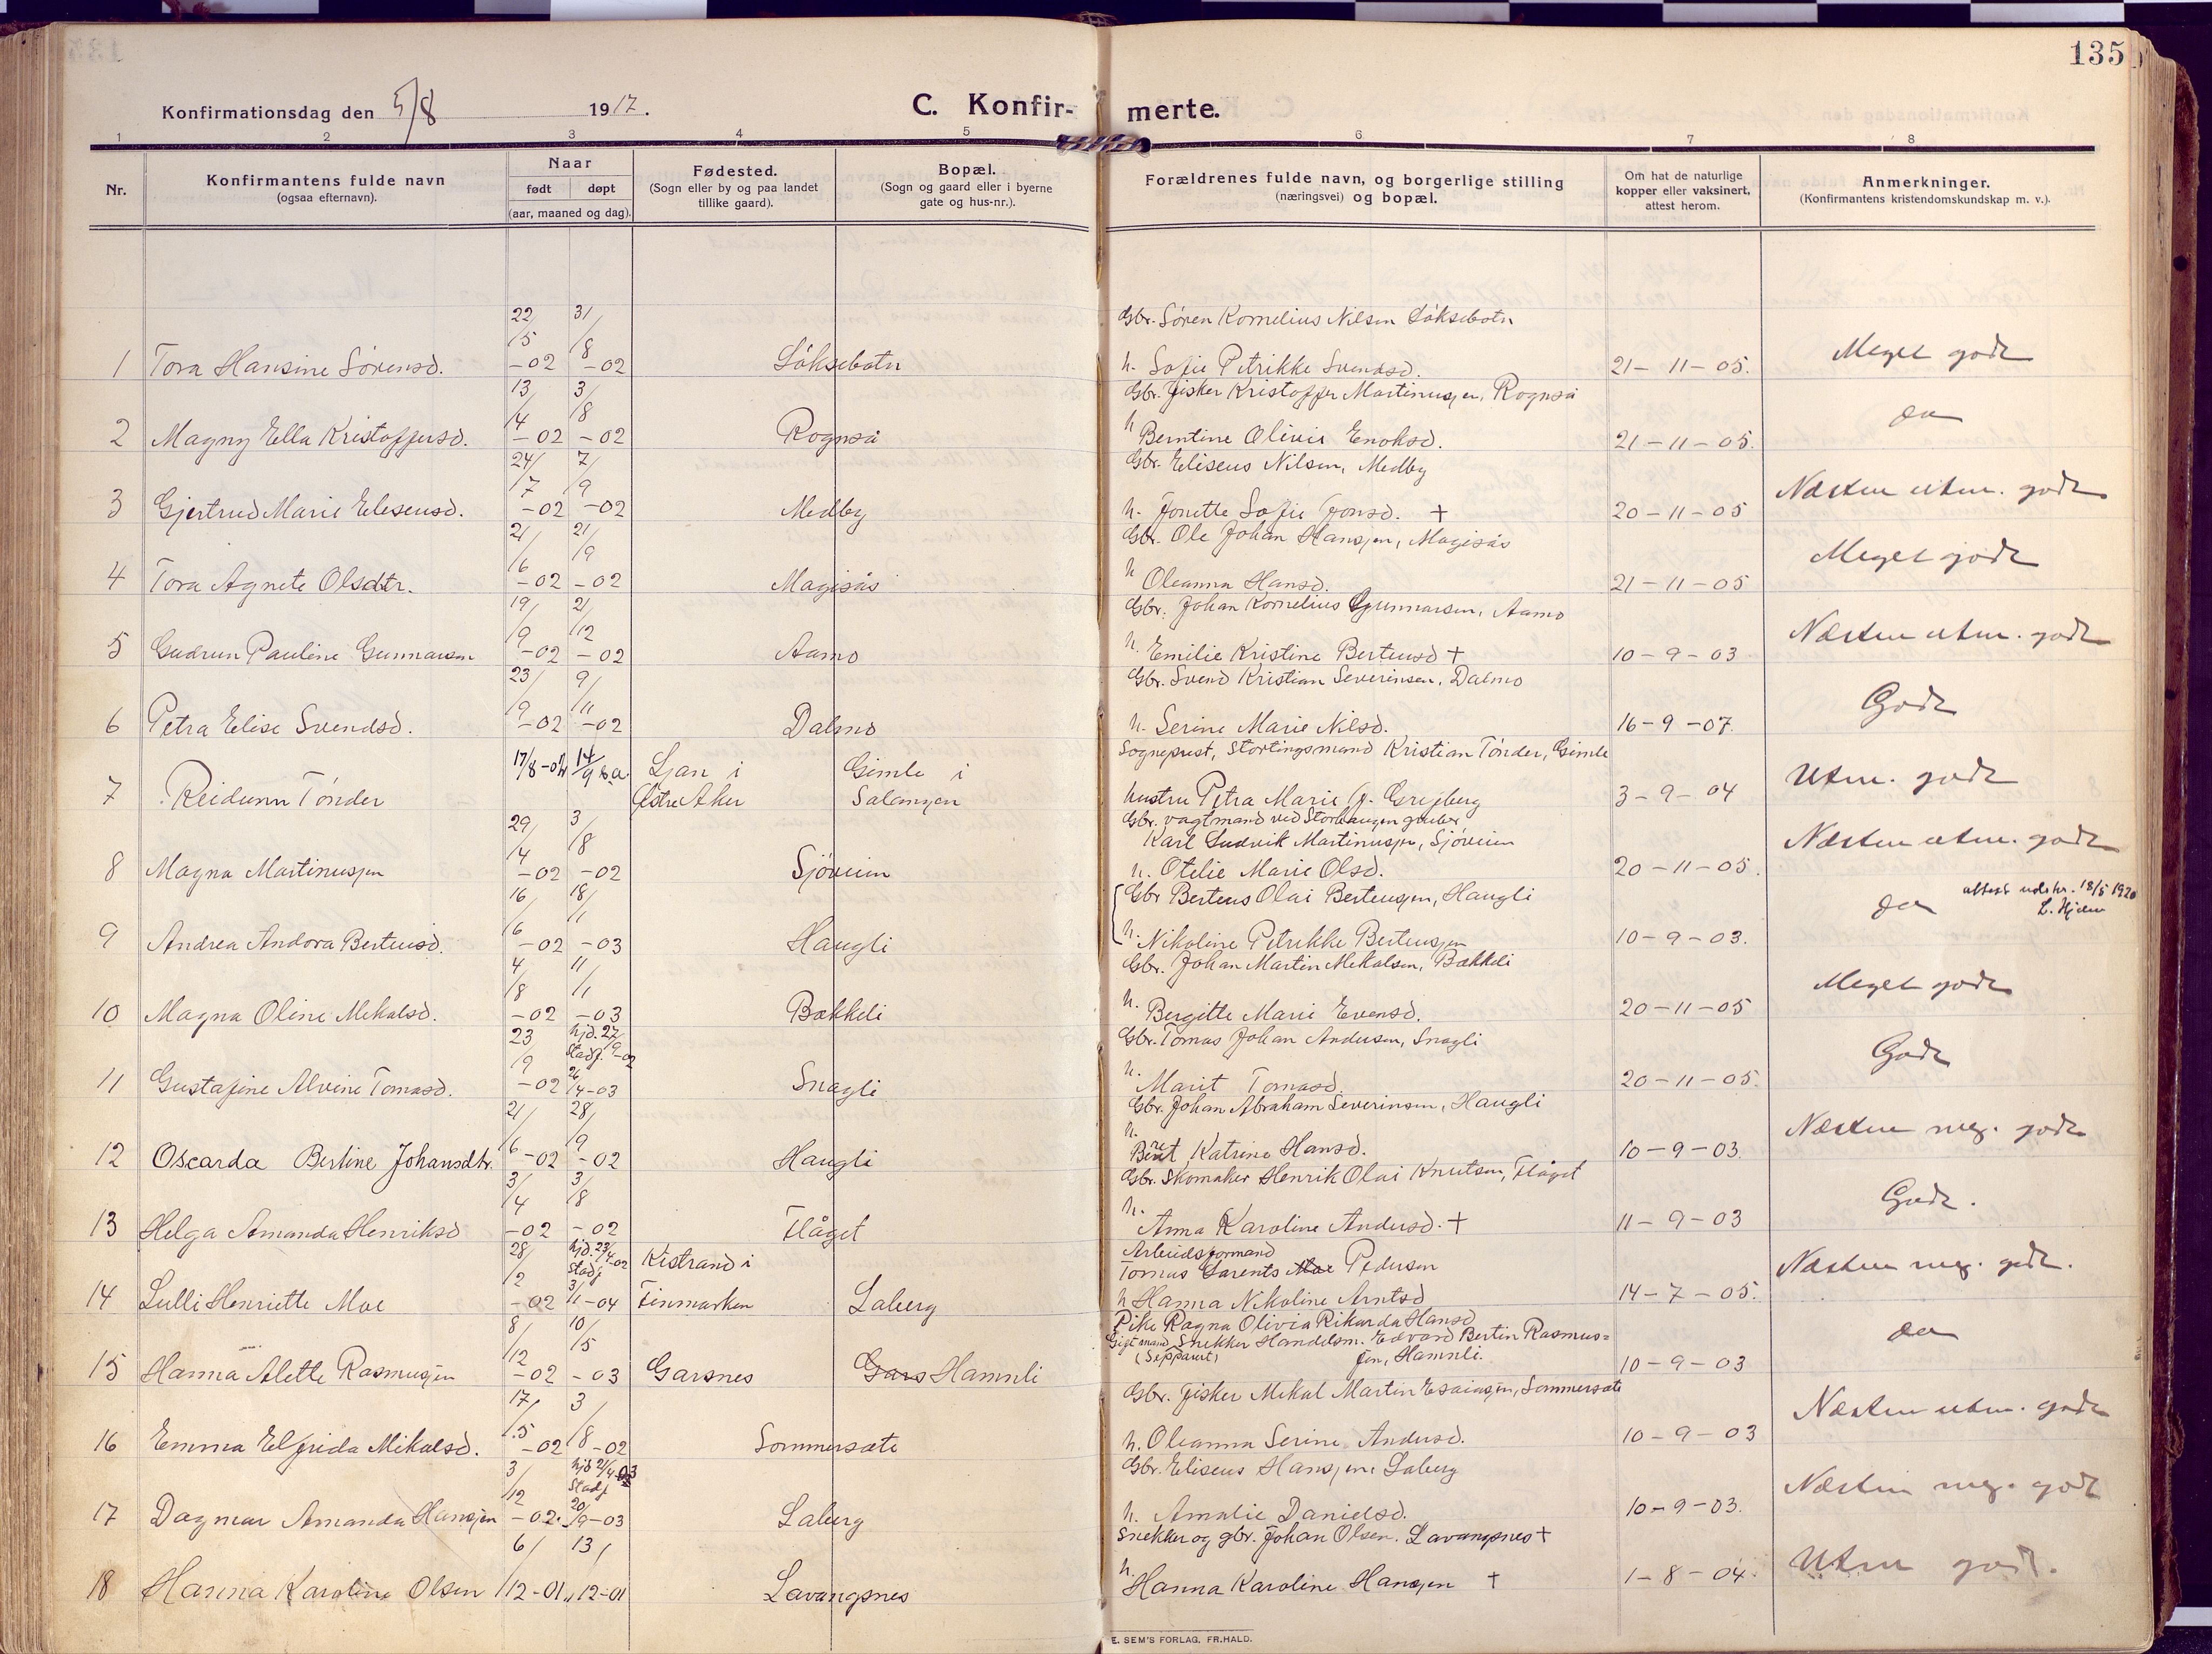 135
Konfirmationsdag den 5/8 1917.
C. Konfir- merte.
1 2 3 4 5 6 7 8
Nr.
Konfirmantens fulde navn
(ogsaa efternavn).
Naar
født døpt
(aar, maaned og dag).
Fødested.
(Sogn eller by og paa landet
tillike gaard).
Bopæl.
(Sogn og gaard eller i byerne
gate og hus-nr.).
Forældrenes fulde navn, og borgerlige stilling
(næringsvei) og bopæl.
Om hat de naturlige
kopper eller vaksinert,
attest herom.
Anmerkninger.
(Konfirmantens kristendomskundskap m. v.).
Gbr. Sören Kornelius Nilsen Löksebotn
1 Tora Hansine Sörensd. 22/5 -02 31/8 -02 Löksebotn h. Sofie Petrikke Svendsd. 21-11-05. Meget godt
Gbr. fisker Kristoffer Martinussen, Rognså
2 Magny Ella Kristoffersd. 13/4 -02 3/8 -02 Rognså h Berntine Olivie Enoksd. 21-11-05. do
Gbr. Eliseus Nilsen, Medby
3 Gjertrud Marie Elesensd. 24/7 -02 7/9 -02 Medby h. Jonette Sofie Jonsd. + 20-11-05 Næsten utm. godt
Gbr. Ole Johan Hansen, Magisås
4 Tora Agnete Olsdtr. 21/6 -02 21/9 -02 Magisås h Oleanna Hansd. 21-11-05 Meget godt
Gbr. Johan Kornelius Gunnarsen, Aamo
5 Gudrun Pauline Gunnarsen 19/9 -02 21/12 -02 Aamo h. Emilie Kristine Bertensd + 10-9-03 Næsten utm. godt
Gbr. Svend Kristian Severinsen, Dalmo
6 Petra Elise Svendsd. 23/9 -02 9/11 -02 Dalmo h. Serine Marie Nilsd. 16-9-07. Godt
Sogneprest, Stortingsmand Kristian Tönder, Gimle
7 Reidunn Tönder 17/8-02 14/9 s.a. Ljan i Östre Aker Gimle i Salangen hustru Petra Marie f. Grejberg 3-9-04 Utm. godt
Gbr. vagtmand ved Storhaugen gruber
Karl Ludvik Martinussen, Sjöveien
8 Magna Martinussen 29/4 -02 3/8 -02 Sjöveien h. Otelie Marie Olsd. 20-11-05. Næsten utm. godt
Gbr Bertens Olai Bertensen, Haugli
9 Andrea Andora Bertensd. 16/6 -02 18/1 -03 Haugli h. Nikoline Petrikke Bertensen 10-9-03. do attest udstr. 18/5 1920
L. Hjelm
Gbr. Johan Martin Mekalsen, Bækkeli
10 Magna Oline Mekalsd. 4/8 -02 11/1 -03 Bækkeli h. Bergitte Marie Evensd. 20-11-05 Meget godt
Gbr. Tomas Johan Andersen, Snagli
11 Gustafine Alvine Tomasd. 23/9 -02 hjd. 27/9 -02 Stadf. 26/4-03 Snagli h. Marit Tomasd. 20-11-05. Godt
Gbr. Johan Abraham Severinsen, Haugli
12 Oscarda Bertine Johansdtr. 21/6 -02 28/9 -02 Haugli h. Berit Katrine Hansd. 10-9-03. Næsten meg. godt
Gbr. Skomaker Henrik Olai Knutsen, Flåget
13 Helga Amanda Henriksd 3/4 -02 3/8 -02 Flåget h. Anna Karoline Andersd. + 11-9-03 Godt.
Arbeidsformand
Tomas Larents Moe Pedersen
14 Lulli Henriette Moe 28/2 -02 hjd. 23/4-02 Stadf 3/11-04 Kistrand i Finmarken Laberg h Hanna Nikoline Arntsd 14-7-05. Næsten meg. godt.
Pike Ragna Olivia Rikarda Hansd
Gift mand Snekker Handelsm. Edvard Bertin Rasmus=
(Seppareret) sen, Hamnli.
15 Hanna Alette Rasmussen 8/12 -02 10/5 -03 Garsnes Gars Hamnli 10-9-03 do
Gbr. fisker Mekal Martin Esaiassen, Sommersæte
16 Emma Elfrida Mikalsd. 17/5 -02 3/8 -02 Sommersæte h. Oleanna Serine Andersd. 10-9-03 Næsten utm. godt
Gbr. Eliseus Hansen, Laberg
17 Dagmar Amanda Hansen 3/12 -02. hjd 2/4 03 Stadf 20/9-03 Laberg h. Amalie Danielsd. 10-9-03. Næsten meg. godt
Snekker og gbr. Johan Olsen. Lavangsnes +
18 Hanna Karoline Olsen 6/12-01 13/12-01 Lavangsnes h. Hanna Karoline Hansen + 1-8-04. Utm godt.
E. SEM'S FORLAG, FR.HALD.